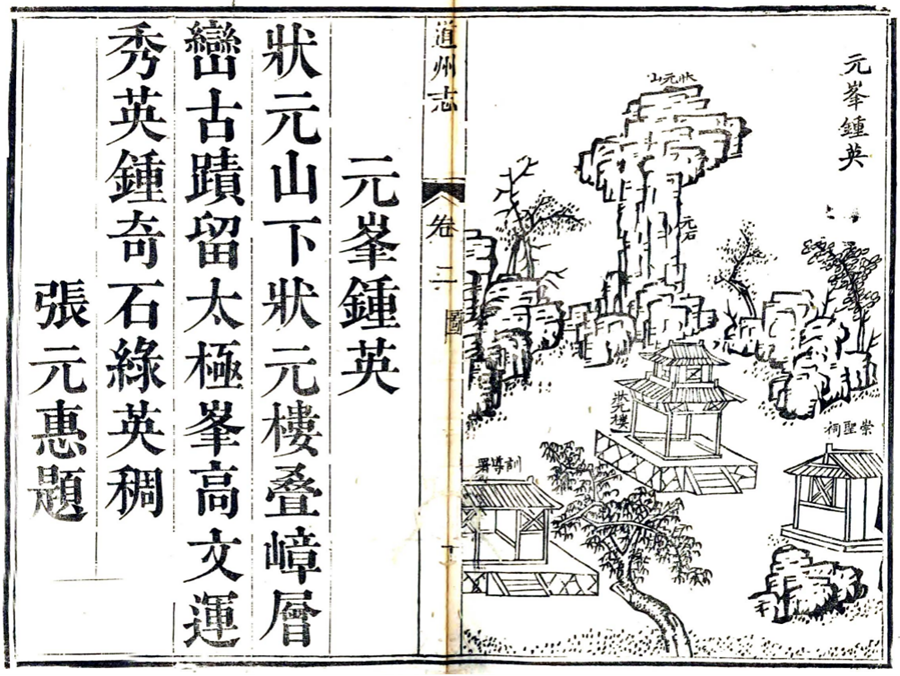 元峯鍾英
狀元山
元石
狀元樓
崇聖祠
訓導署
道州志
卷二
圖
元峯鍾英
狀元山下狀元樓叠嶂層
巒古蹟留太極峯高文運
秀英鍾奇石綠英稠
張元惠題